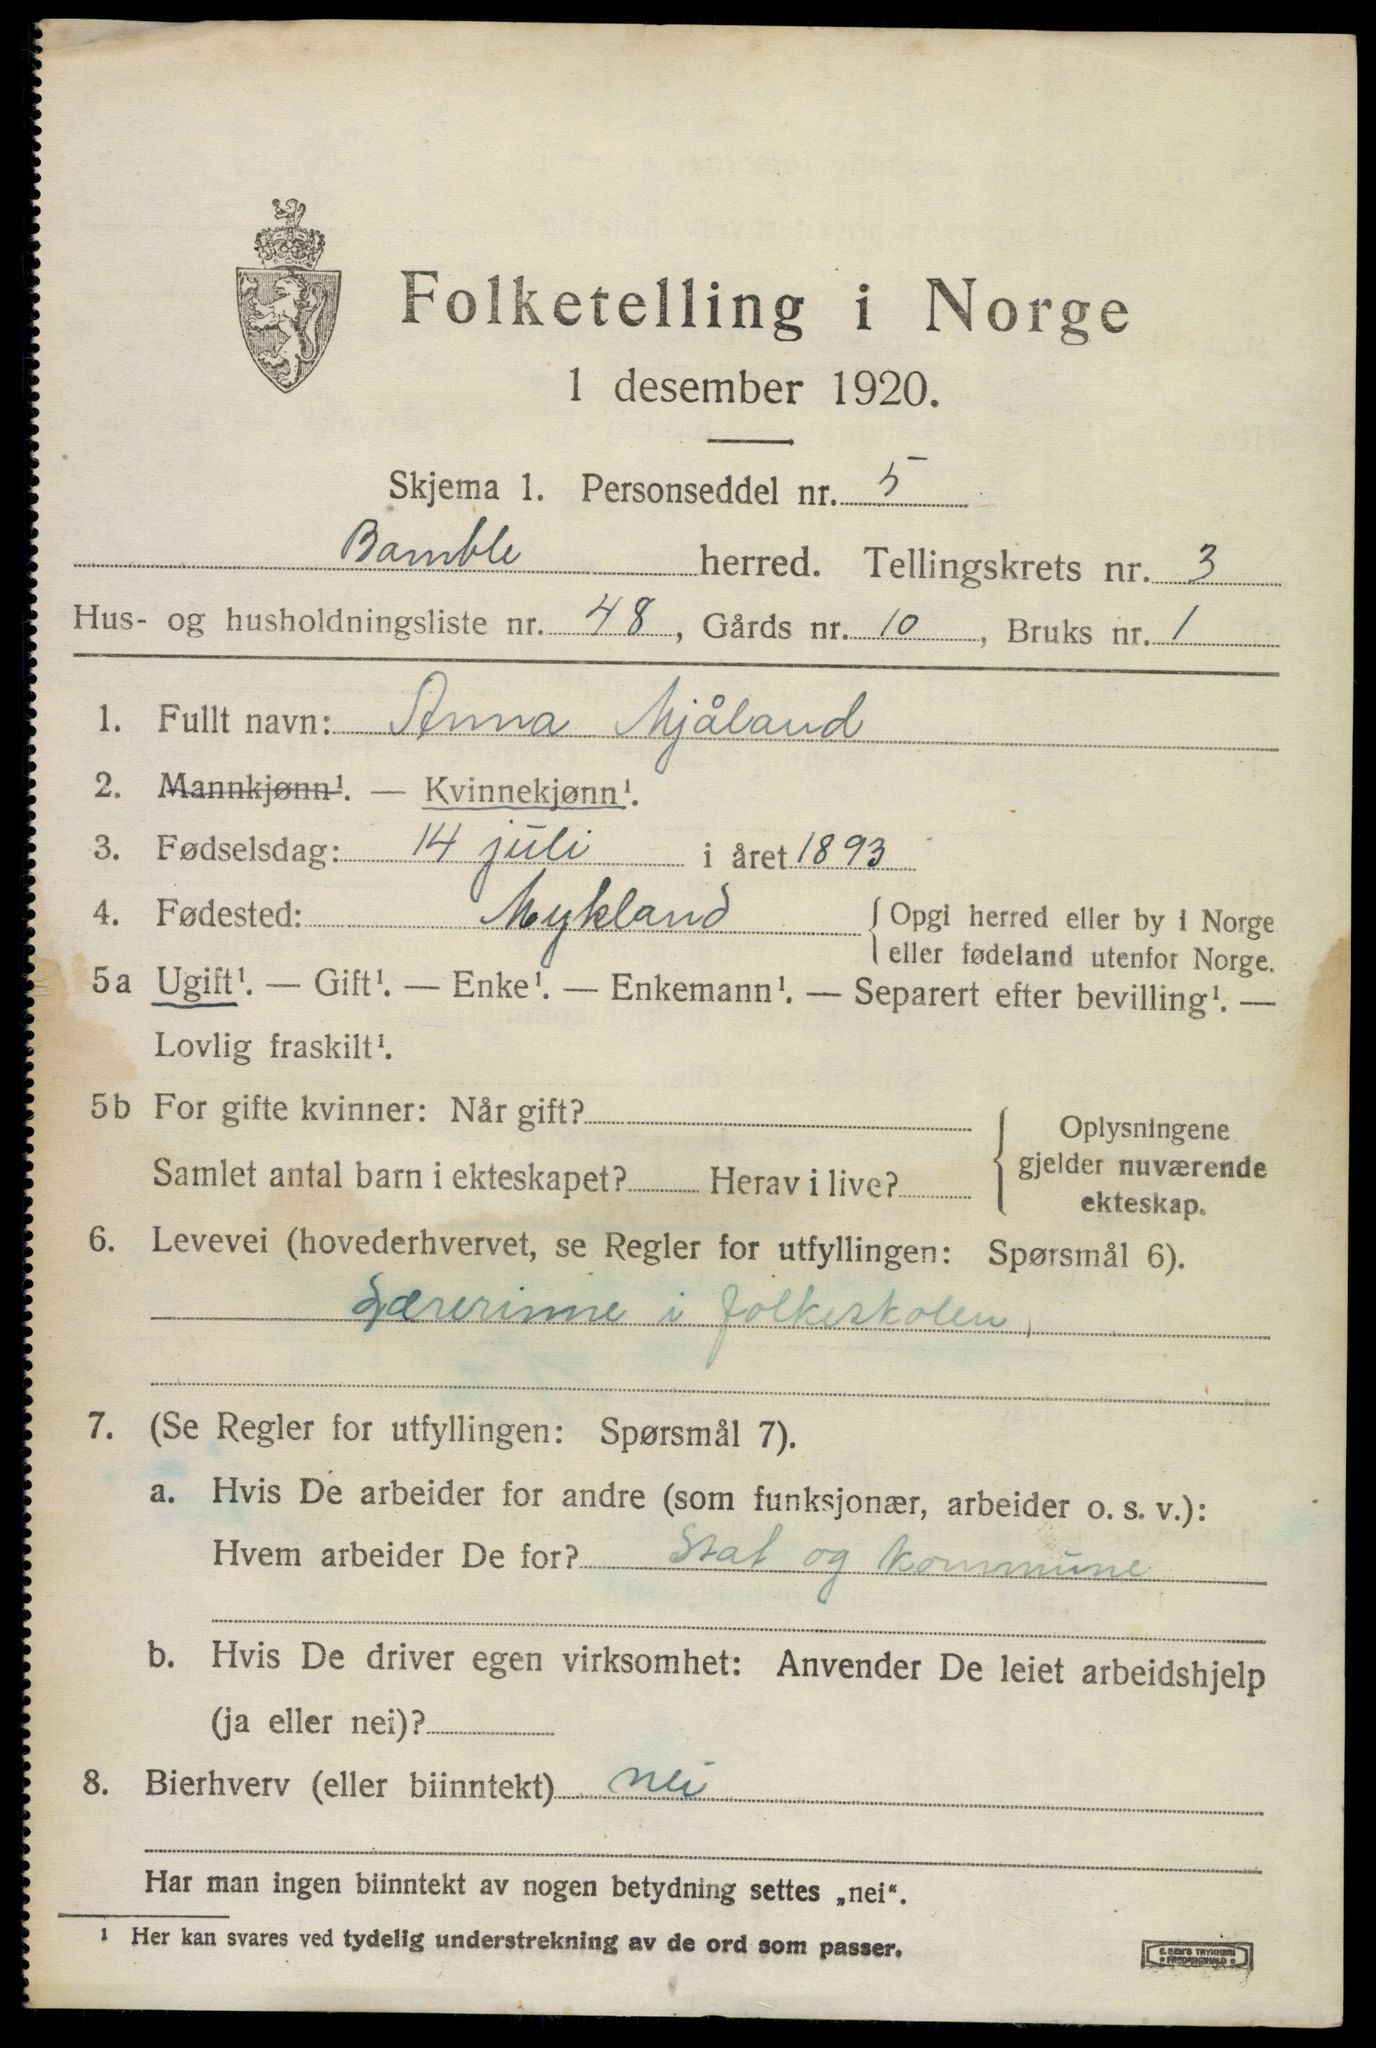 Folketelling i Norge
1 desember 1920.
Skjema 1. Personseddel nr. 5
Bamble herred. Tellingskrets nr. 3
Hus- og husholdningsliste nr. 48, Gårds nr. 10, Bruks nr. 1
1. Fullt navn: Anna Mjåland
2. Mannkjønn¹. — Kvinnekjønn¹.
3. Fødselsdag: 14 juli i året 1893
4. Fødested: Mykland { Opgi herred eller by i Norge
eller fødeland utenfor Norge.
5a Ugift¹. — Gift¹. — Enke¹. — Enkemann¹. — Separert efter bevilling¹. —
Lovlig fraskilt¹.
5b For gifte kvinner: Når gift?
Samlet antal barn i ekteskapet? Herav i live?
{ Oplysningene
gjelder nuværende
ekteskap.
6. Levevei (hovederhvervet, se Regler for utfyllingen: Spørsmål 6).
Lærerinne i folkeskolen
7. (Se Regler for utfyllingen: Spørsmål 7).
a. Hvis De arbeider for andre (som funksjonær, arbeider o. s. v.):
Hvem arbeider De for? Stat og kommune
b. Hvis De driver egen virksomhet: Anvender De leiet arbeidshjelp
(ja eller nei)?
8. Bierhverv (eller biinntekt) nei
Har man ingen biinntekt av nogen betydning settes „nei“.
¹ Her kan svares ved tydelig understrekning av de ord som passer.